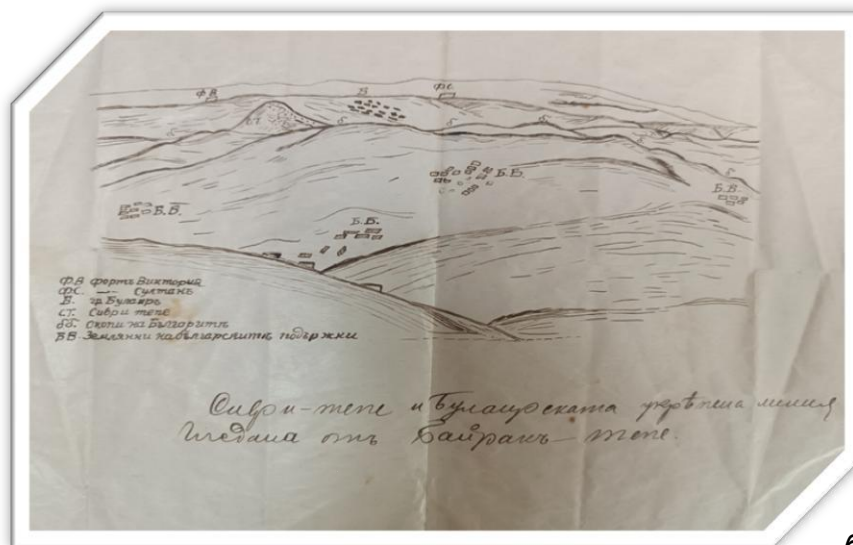 Ф.В. Б Ф.С.
С.Т. б б б б
Б.В.
Б.В. Б.В.
Б.Б.
Ф.В фортъ Виктория
Ф.С. —„— Султанъ
Б. гр. Булаиръ
с.т. Сиври тепе
бб. Окопи на Българитѣ
Б В. Землянки на българскитѣ подържки
Сиври-тепе и Булаирската укрѣпена линия
Гледана отъ Байракъ-тепе.